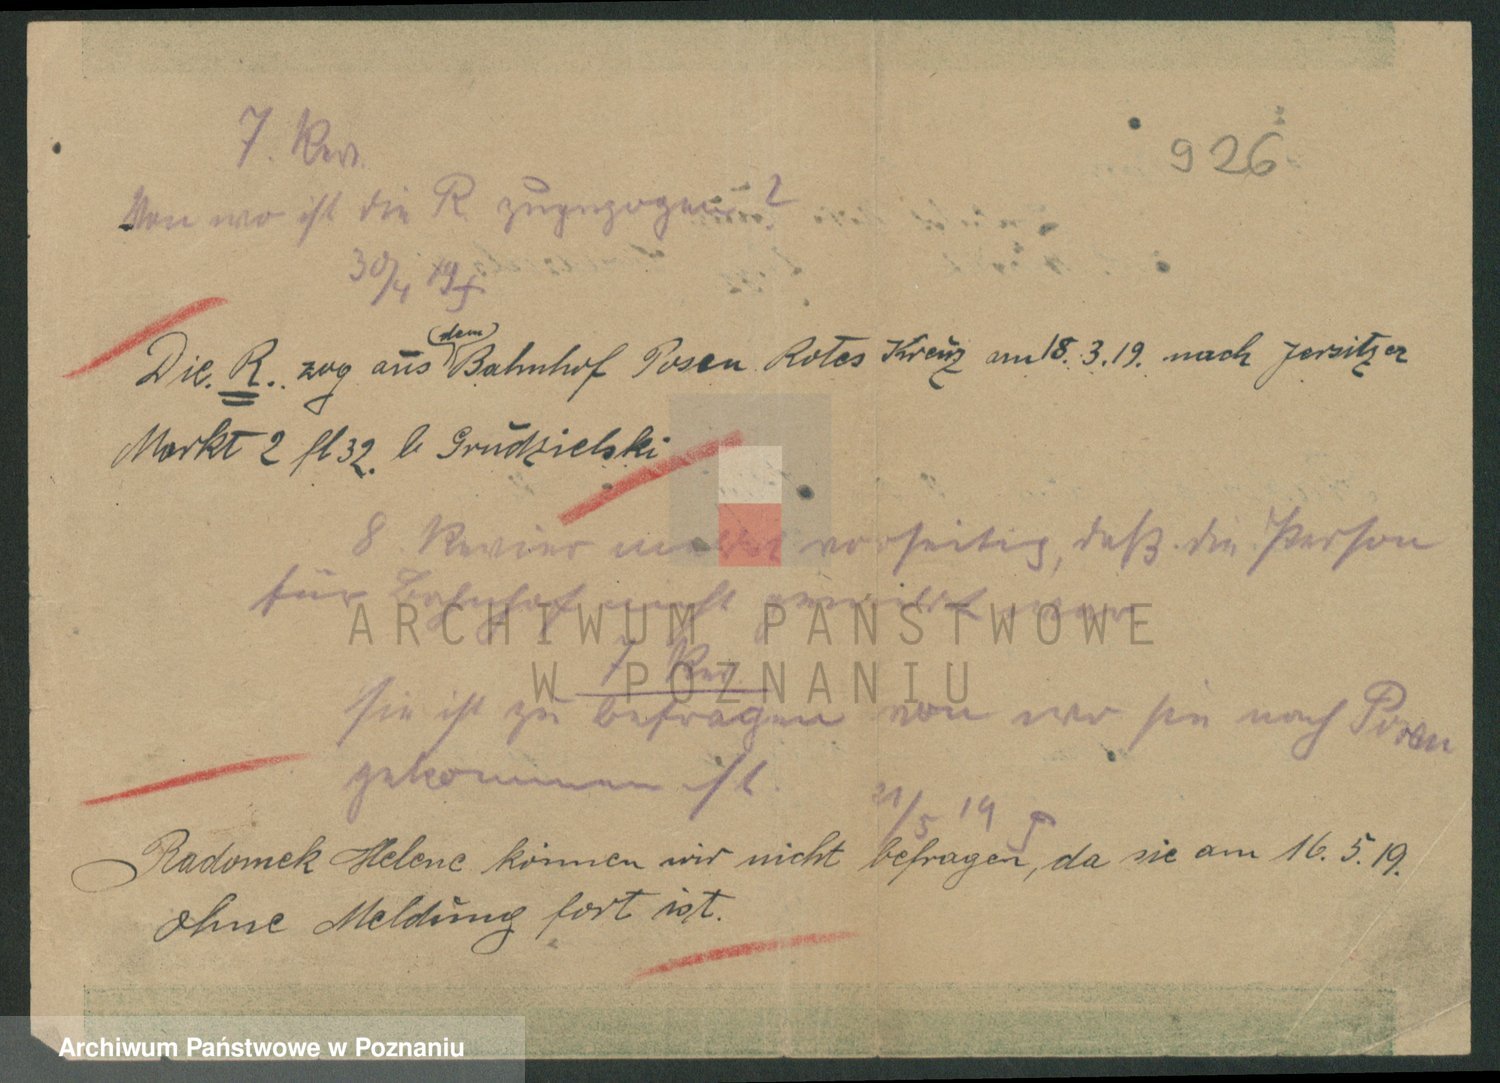 926
7. Rev.
Von wo ist die R. zugezogen?
30/4 19
Die R. zog aus (dem) Bahnhof Posen Rotes Kreuz am 18. 3. 19. nach Jersitzer
Markt 2 fl 32. b Grudzielski
8. Revier meldet vorseitig, daß die Person
für Bahnhof nicht gemeldet war.
7. Rev.
Sie ist zu befragen von wo sie nach Posen
gekommen ist.
21/5 19
Radomek Helene können wir nicht befragen, da sie am 16. 5. 19.
ohne Meldung fort ist.
ARCHIWUM PAŃSTWOWE
W POZNANIU
Archiwum Państwowe w Poznaniu